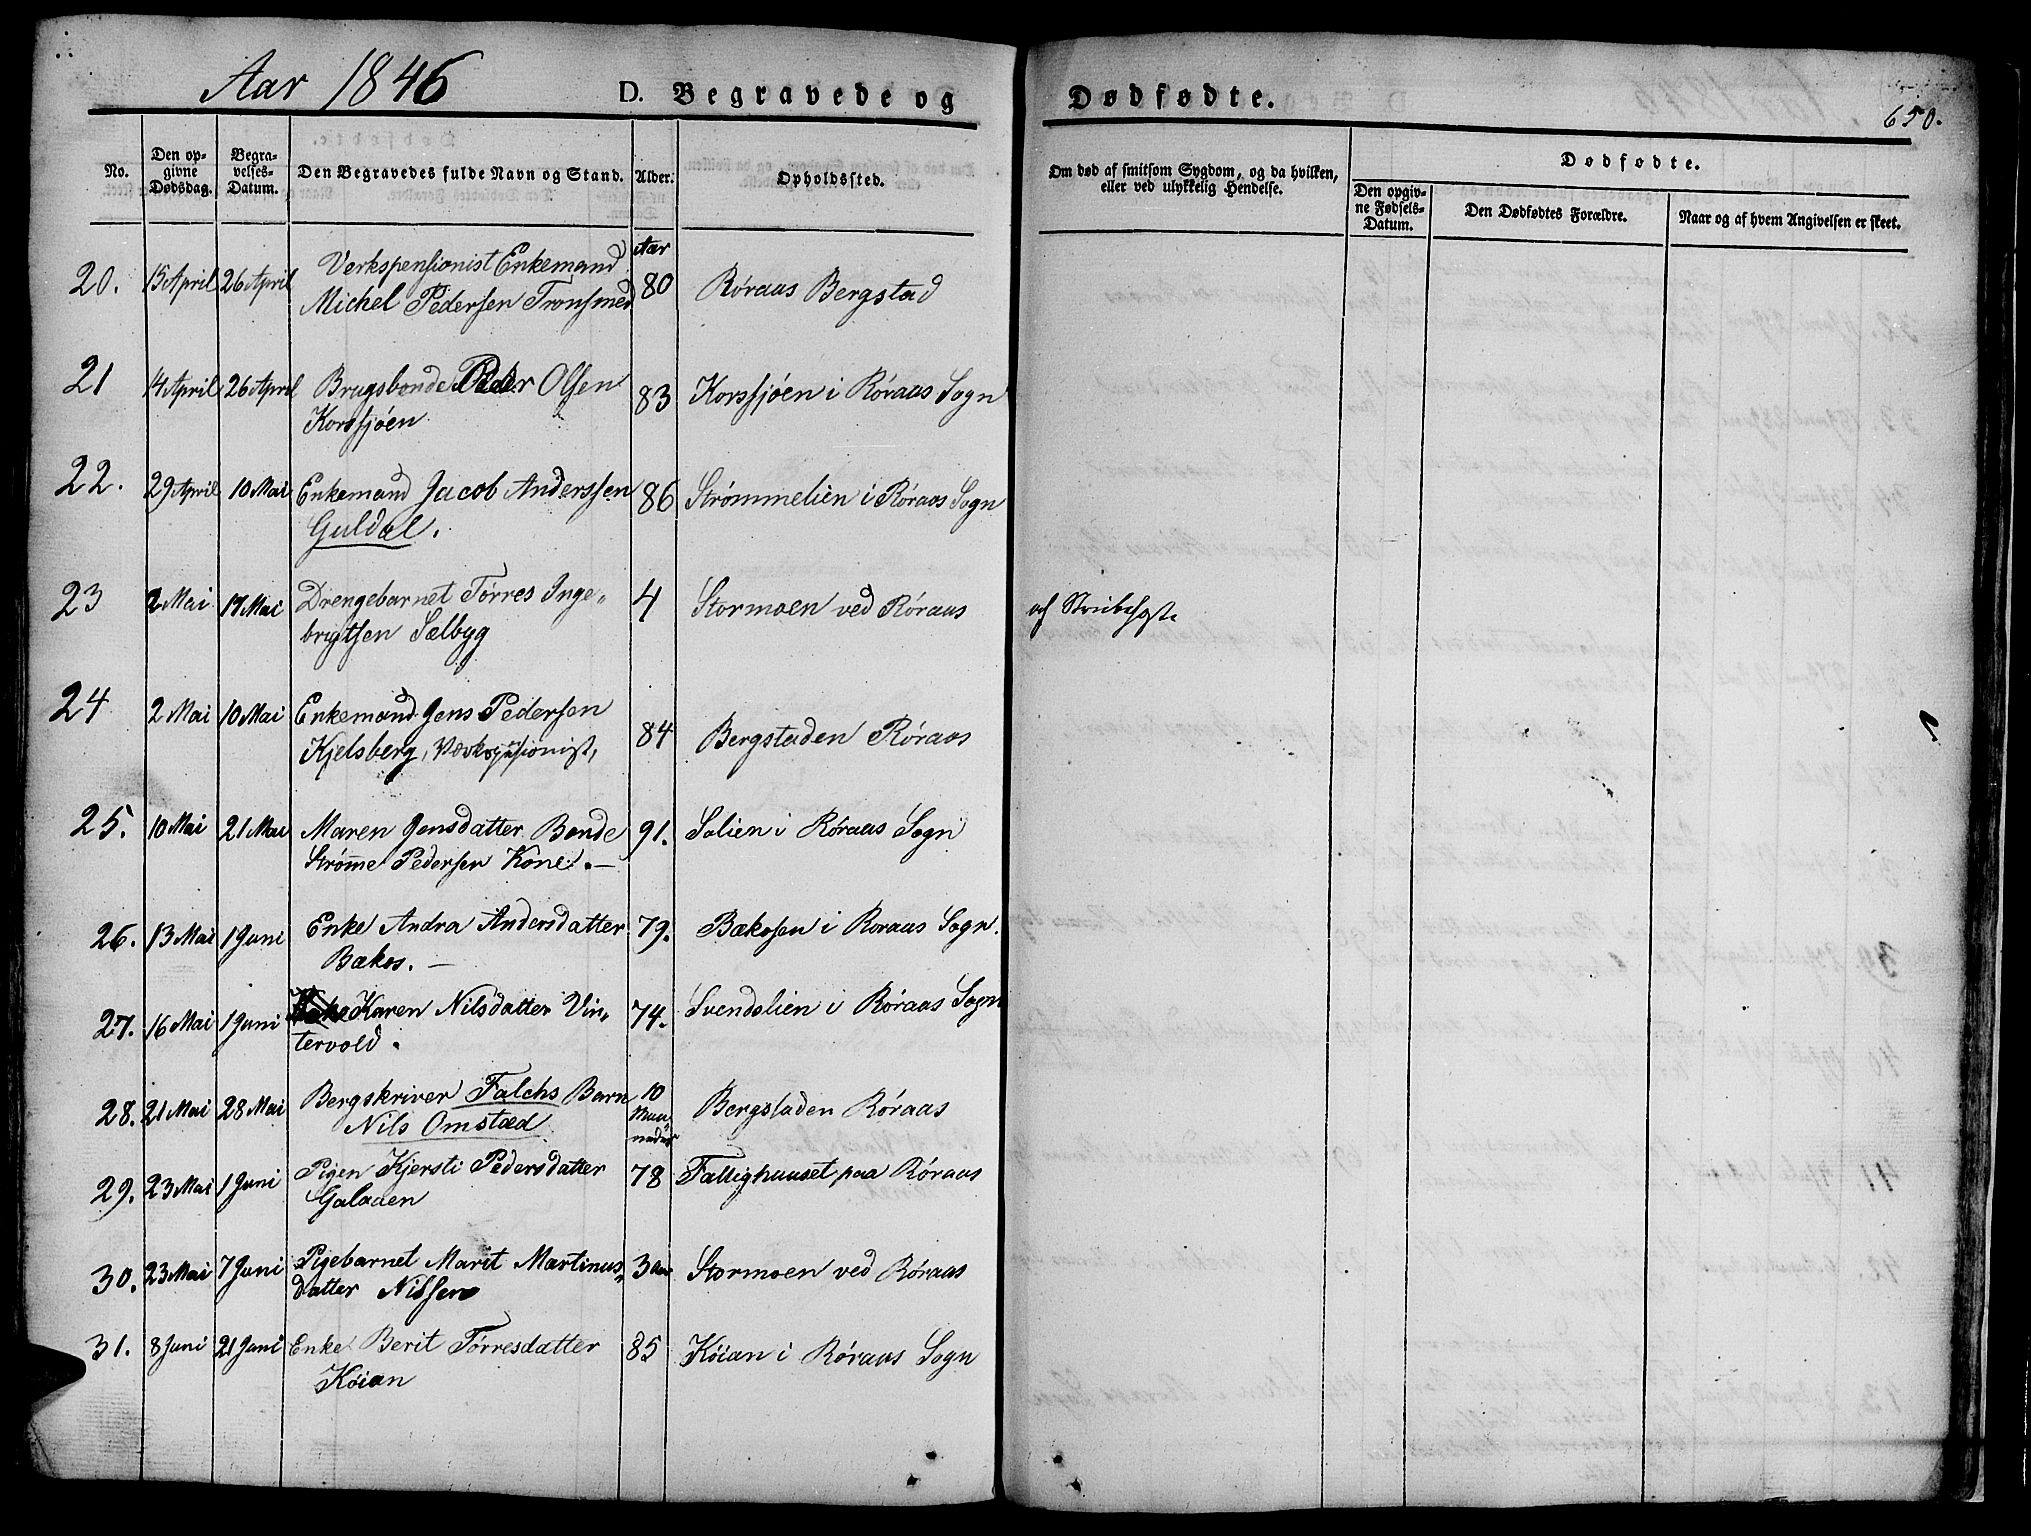 Aar 1846
D. Begravede og
Dødfødte.
650.
No.
Den opgivne Dødsdag.
Begravelses-Datum.
Den Begravedes fulde Navn og Stand.
Alder.
Opholdssted.
Om død af smitsom Sygdom, og da hvilken, eller ved ulykkelig Hendelse.
Dødfødte.
Den opgivne Fødsels-Datum.
Den Dødfødtes Forældre.
Naar og af hvem Angivelsen er skeet.
20. 15 April 26 April Verkspensionist Enkemand
Michel Pedersen Tronsmed
Aar
80 Røraas Bergstad
21 14 April 26 April Brugsbonde Peder Olsen
Korssjøen
83 Korssjøen i Røraas Sogn
22. 29 April 10 Mai Enkemand Jacob Anderssen
Guldal.
86 Strømmelien i Røraas Sogn
23 2 Mai 17 Mai Drengebarnet Tørres Inge„
brigtsen Sælbyg
4 Stormoen ved Røraas
af Strubehoste
24 2 Mai 10 Mai Enkemand Jens Pedersen
Kjelsberg, Værkspensionist,
84 Bergstaden Røraas
25. 10 Mai 21 Mai Maren Jensdatter Bonde
Strømme Pedersen Kone. —
91. Solien i Røraas Sogn
26. 13 Mai 1 Juni Enke Andra Andersdatter
Bækos. —
79. Bækosen i Røraas Sogn.
27. 16 Mai 1 Juni Karen Nilsdatter Vin„
tervold.
74. Svendslien i Røraas Sogn
28. 21 Mai 28 Mai Bergskriver Falchs Barn
Nils Omstæd
10
Maa„
neder
Bergstaden Røraas
29. 23 Mai 1 Juni Pigen Kjersti Pedersdatter
Galaaen
78 Fattighuuset paa Røraas
30. 23 Mai 7 Juni Pigebarnet Marit Martinus„
datter Nilssen
3 Aar Stormoen ved Røraas
31. 8 Juni 21 Juni Enke Berit Tørresdatter
Køian
85 Køian i Røraas Sogn